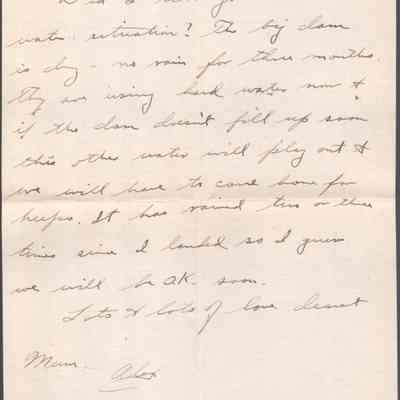 water situation? The big dam
is dry - no rain for three months.
They are using hard water now &
if the dam doesn't fill up soon
this other water will play out &
we will have to come home for
keeps. It has rained two or three
times since I landed so I guess
we will be OK. soon.
Lots & lots of love dearest
Mum - Alex